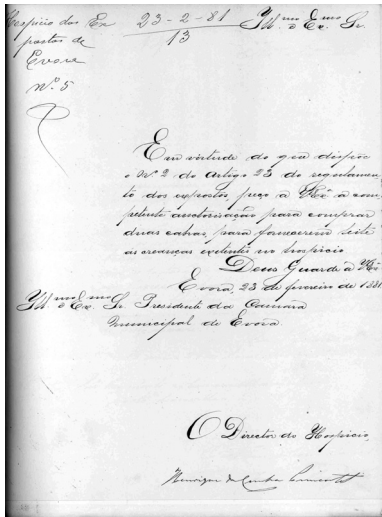 Hospicio dos Ex
postos de
Evora
Nº. 5
23-2-81
13
Illmo e Exmo Sr
Em virtude do que dispõe
o Nº 2 do Artigo 23 do regulamen
to dos expostos, peço a a com
petente auctorisação para comprar
duas cabras, para fornecerem leite
ás creanças existentes no hospicio
Deos Guarde a
Evora, 23 de fevereiro de 1881
Illmo e Exmo Sr Presidente da Camara
Municipal de Evora.
O Director do Hospicio,
Henrique da Cunha Pimentel